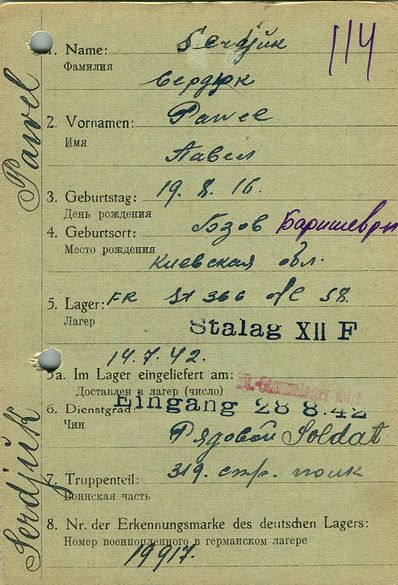 114
1. Name: Serdjuk
Фамилия
Сердюк
2. Vornamen: Pawel
Имя
Павел
3. Geburtstag: 19. 8. 16.
День рождения
4. Geburtsort:
Место рождения
Киевская обл.
5. Lager: FR St 366 № 58.
Лагер
Stalag XII F
14.7.42.
5a. Im Lager eingeliefert am:
Доставлен в лагер (число)
Eingang 28 8.42
6. Dienstgrad:
Чин
Рядовой Soldat
7. Truppenteil: 319. стр. полк
Воинская часть
8. Nr. der Erkennungsmarke des deutschen Lagers:
Номер военнопленного в германском лагере
19917.
Serdjuk Pawel